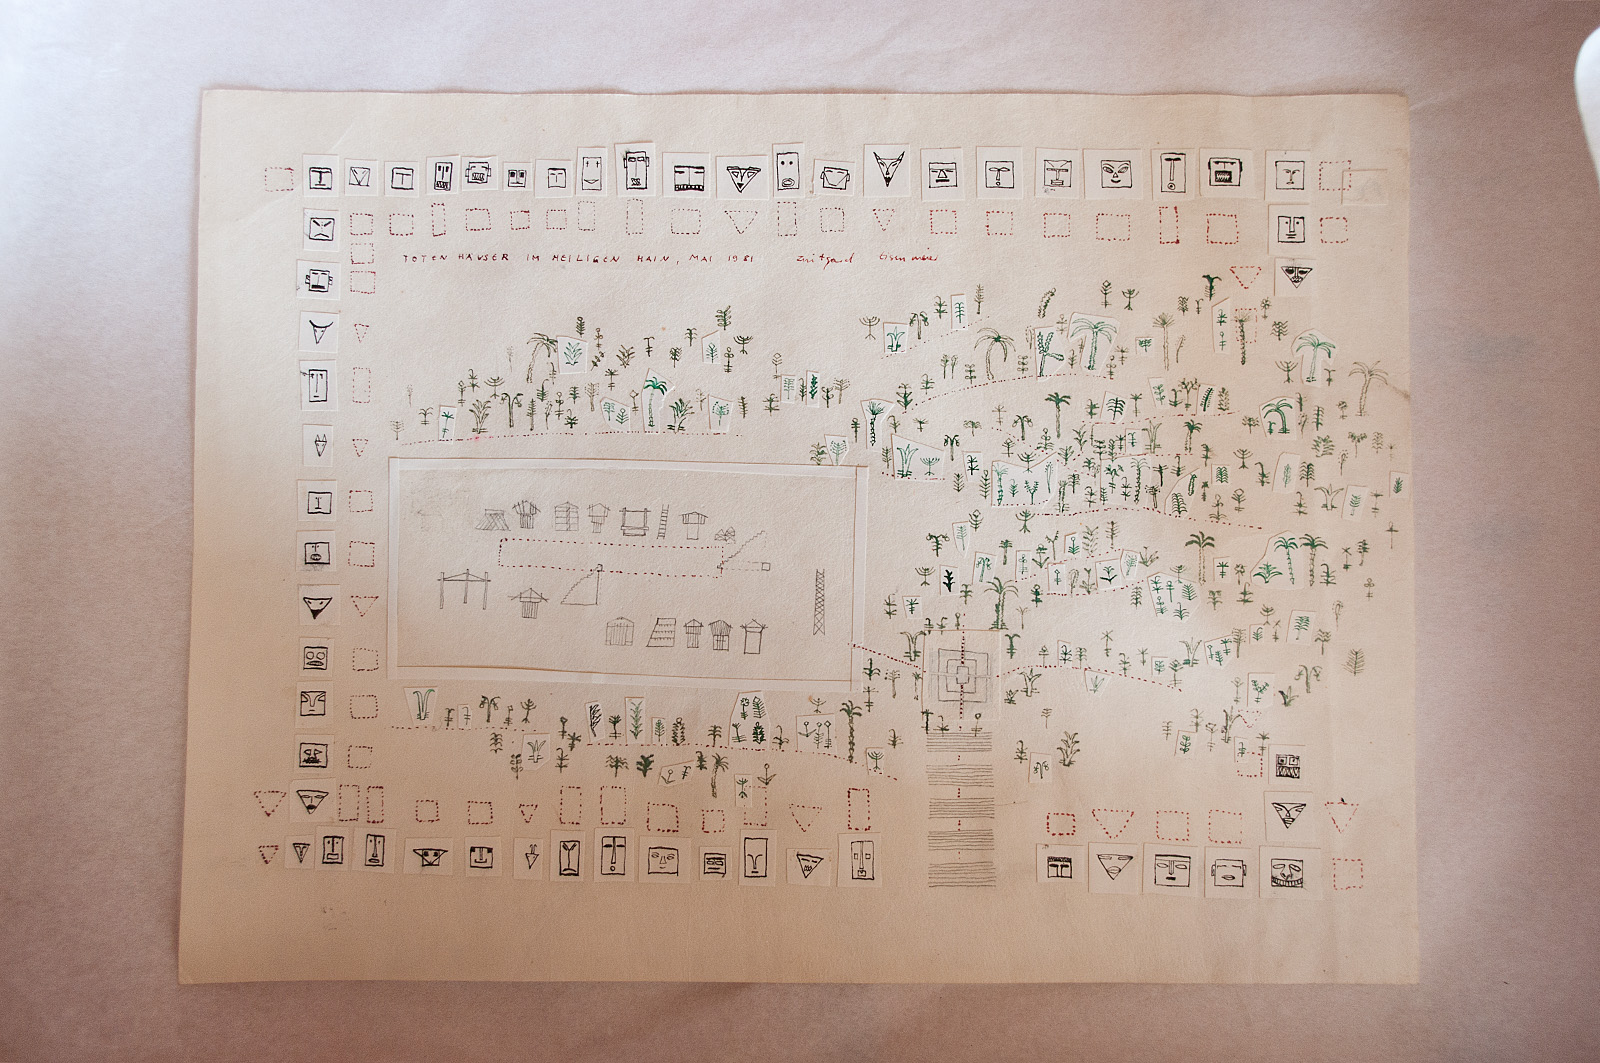 TOTEN HÄUSER IM HEILIGEN HAIN, MAI 1981